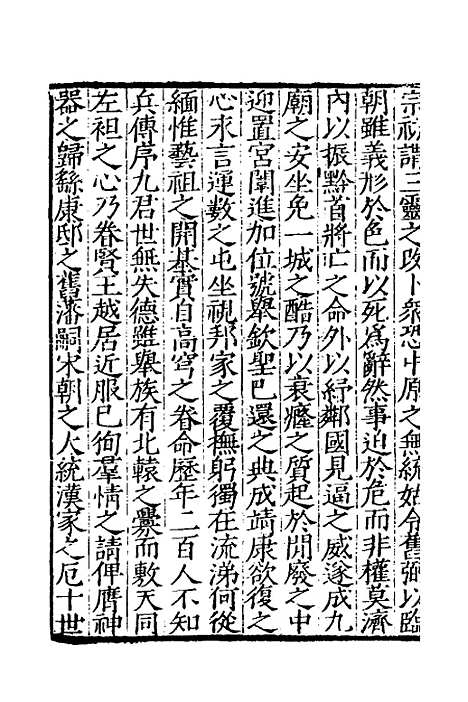 宗祧謂三靈之改卜衆恐中原之無統姑令舊弼以臨
朝雖義形於色而以死為辭然事迫於危而非權莫濟
內以振黔首將亡之命外以紓鄰國見逼之威遂成九
廟之安坐免一城之酷乃以衰癃之質起於閒廢之中
迎置宮闈進加位號舉欽聖已還之典成靖康欲復之
心永言運數之屯坐視邦家之覆撫躬獨在流涕何從
緬惟藝祖之開基實自高穹之眷命歷年二百人不知
兵傳序九君世無失德雖舉族有北轅之舋而敷天同
左袒之心乃眷賢王越居近服已徇羣情之請俾膺神
器之歸繇康邸之舊藩嗣宋朝之大統漢家之厄十世